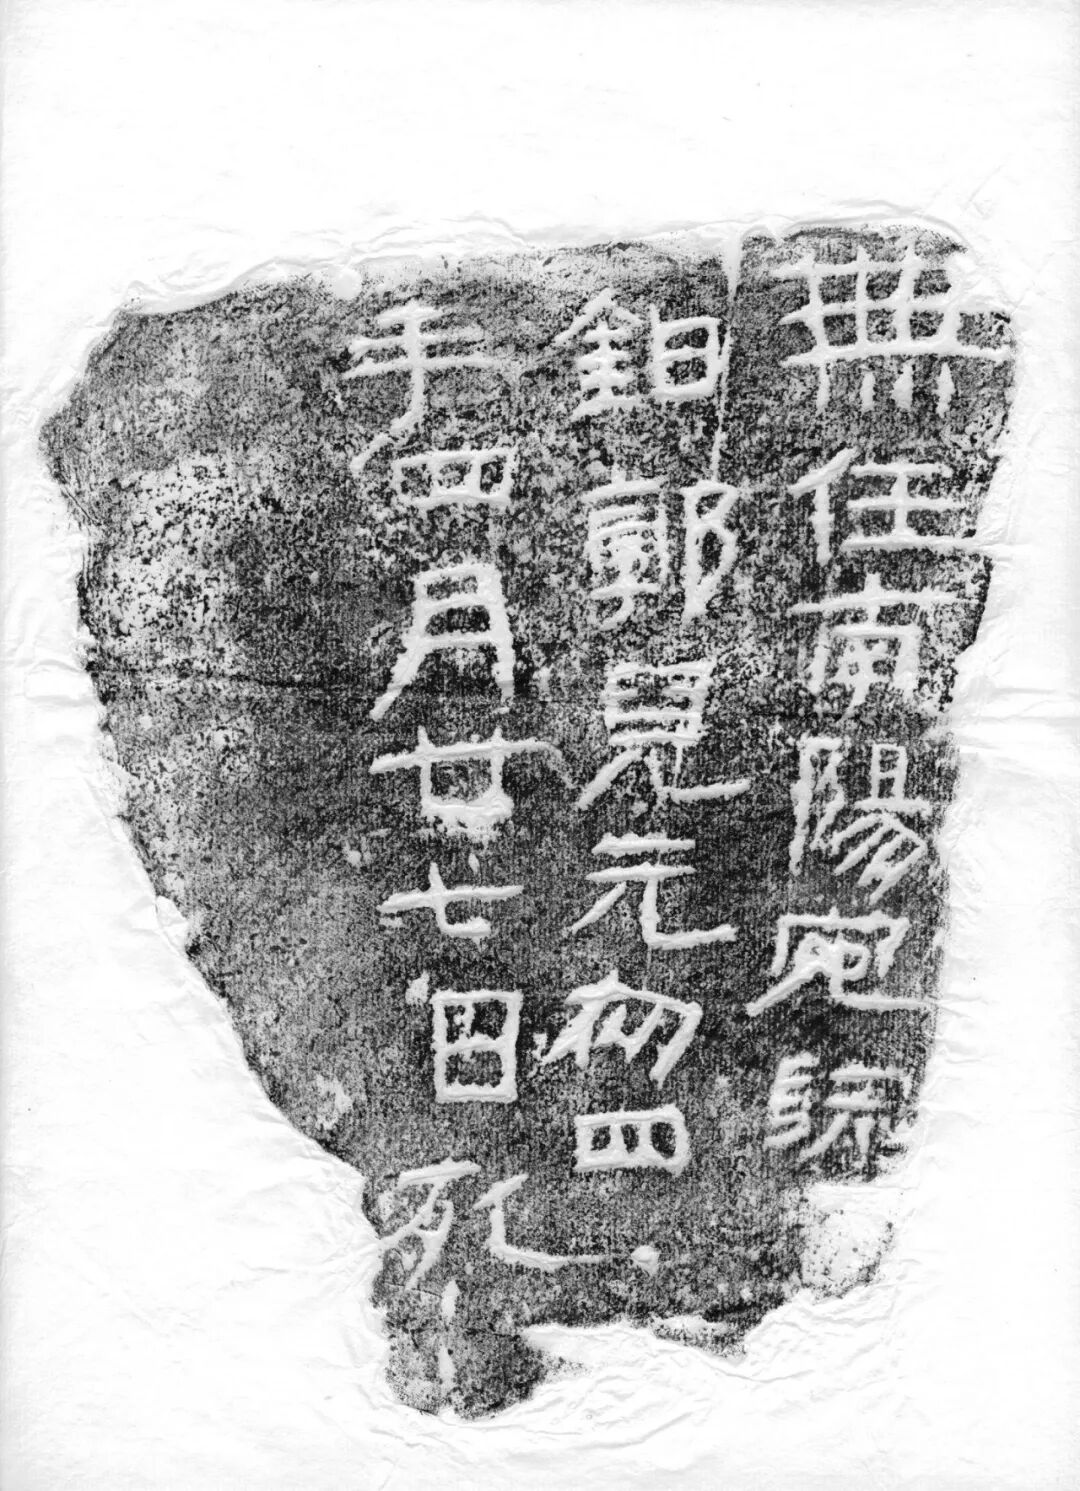 無任南陽宛髡
鉗郭元初四
年四月廿七日死